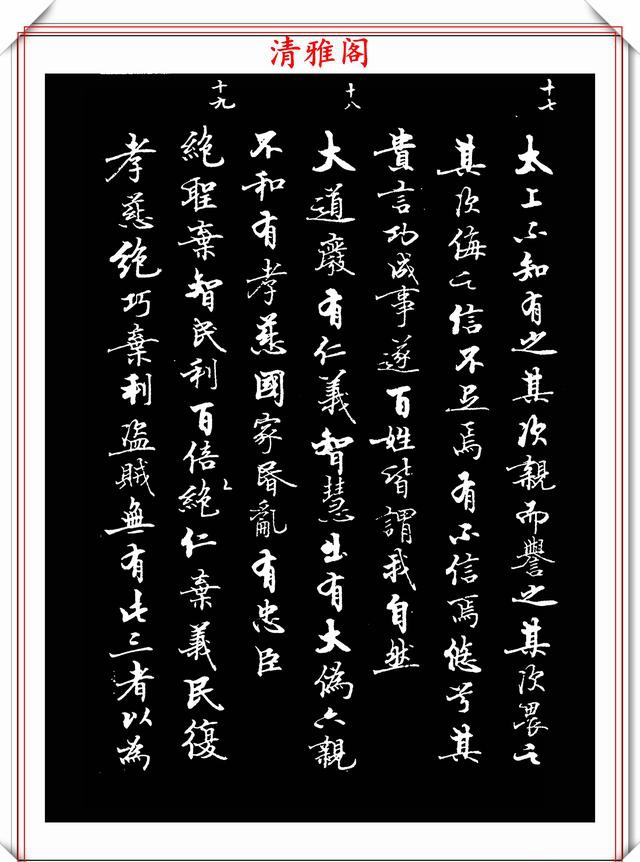 清雅阁
十七
太上不知有之其次親而譽之其次畏之
其次侮之信不足焉有不信焉悠兮其
貴言功成事遂百姓皆謂我自然
十八
大道廢有仁義智慧出有大偽六親
不和有孝慈國家昏亂有忠臣
十九
絕聖棄智民利百倍絕仁棄義民復
孝慈絕巧棄利盜賊無有此三者以為